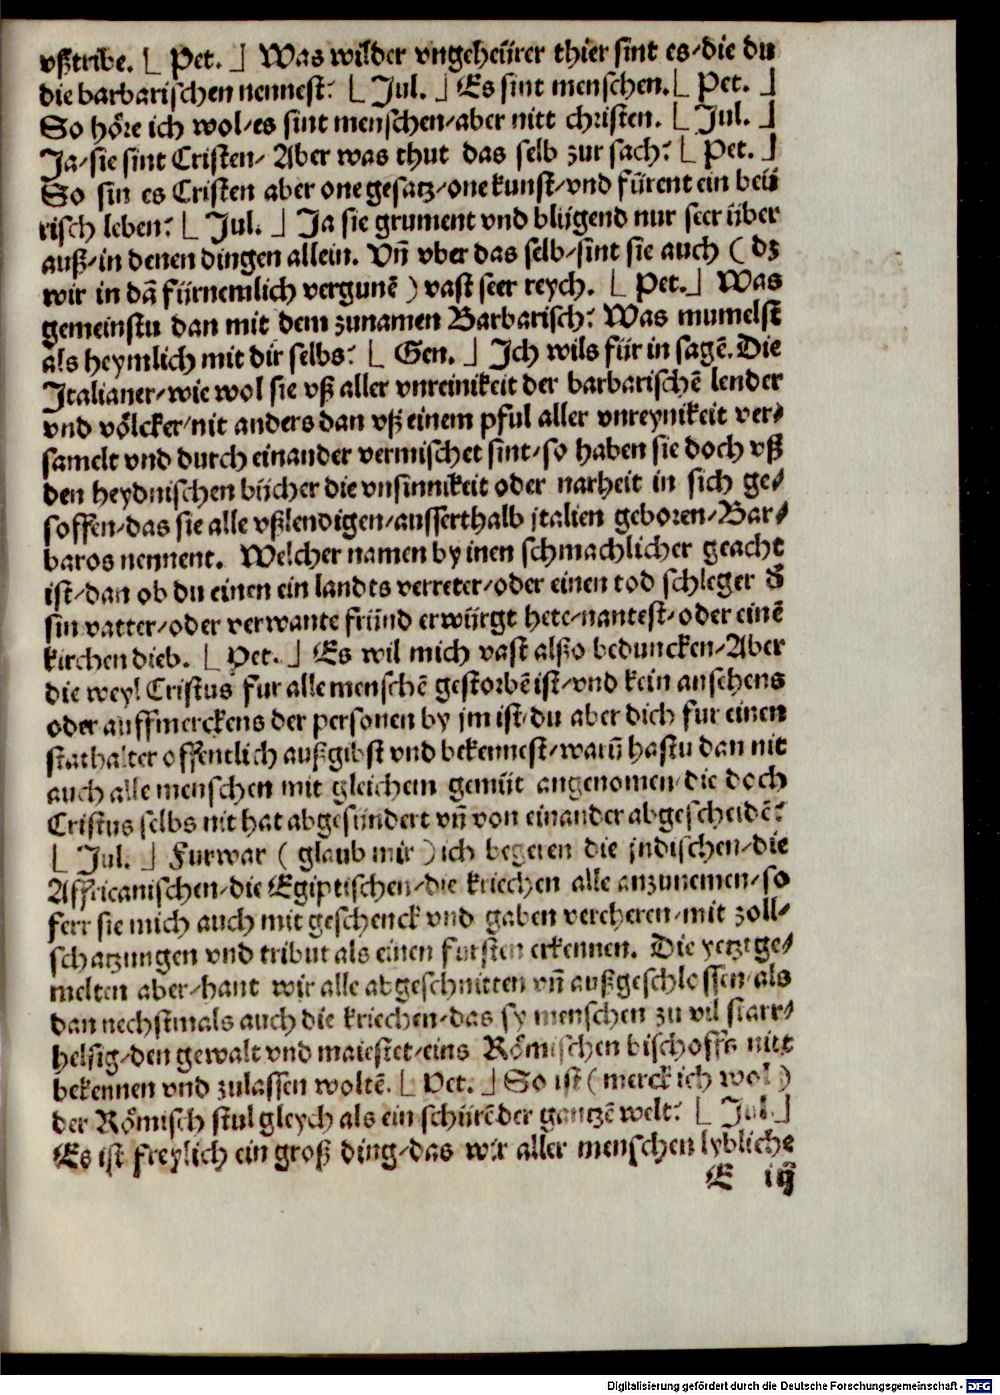 vßtribe. ⌊ Pet. ⌋ Was wilder vngeheürer thier sint es/die du
die barbarischen nennest? ⌊ Jul. ⌋ Es sint menschen. ⌊ Pet. ⌋
So höre ich wol/es sint menschen/aber nitt christen. ⌊ Jul. ⌋
Ja/sie sint Cristen/ Aber was thut das selb zur sach? ⌊ Pet. ⌋
So sin es Cristen aber one gesatz/one kunst/vnd fürent ein beü
risch leben? ⌊ Jul. ⌋ Ja sie grument vnd blügend nur seer über
auß/in denen dingen allein. Vn̄ vber das selb/sint sie auch ( dz
wir in dā fürnemlich vergunē ) vast seer reych. ⌊ Pet. ⌋ Was
gemeinstu dan mit dem zunamen Barbarisch? Was mumelst
als heymlich mit dir selbs? ⌊ Gen. ⌋ Ich wils für in sagē. Die
Italianer/wie wol sie vß aller vnreinikeit der barbarischē lender
vnd völcker/nit anders dan vß einem pful aller vnreynikeit ver⸗
samelt vnd durch einander vermischet sint/so haben sie doch vß
den heydnischen bücher die vnsinnikeit oder narheit in sich ge⸗
soffen/das sie alle vßlendigen/ausserthalb jtalien geboren/Bar⸗
baros nennent. Welcher namen by inen schmachlicher geacht
ist/dan ob du einen ein landts verreter/oder einen tod schleger d̄
sin vatter/oder verwante fründ erwürgt hete/nantest/oder einē
kirchen dieb. ⌊ Pet. ⌋ Es wil mich vast alßo beduncken/Aber
die weyl Cristus fur alle menschē gestorbē ist/vnd kein ansehens
oder auffmerckens der personen by jm ist/du aber dich fur einen
stathalter offentlich außgibst vnd bekennest/warū hastu dan nit
auch alle menschen mit gleichem gemüt angenomen/die doch
Cristus selbs nit hat abgesündert vn̄ von einander abgescheidē?
⌊ Jul. ⌋ Furwar ( glaub mir ) ich begeren die jndischen/die
Affricanischen/die Egiptischen/die kriechen alle anzunemen/so
ferr sie mich auch mit geschenck vnd gaben vereheren/mit zoll⸗
schatzungen vnd tribut als einen fursten erkennen. Die yetzt ge⸗
melten aber/hant wir alle abgeschnitten vn̄ außgeschlossen/als
dan nechstmals auch die kriechen/das sy menschen zu vil starr⸗
helsig/den gewalt vnd maiestet/eins Römischen bischoffs nitt
bekennen vnd zulassen woltē. ⌊ Pet. ⌋ So ist ( merck ich wol )
der Römisch stul gleych als ein schürē der gantzē welt? ⌊ Jul. ⌋
Es ist freylich ein groß ding/das wir aller menschen lybliche
E iij
Digitalisierung gefördert durch die Deutsche Forschungsgemeinschaft - DFG